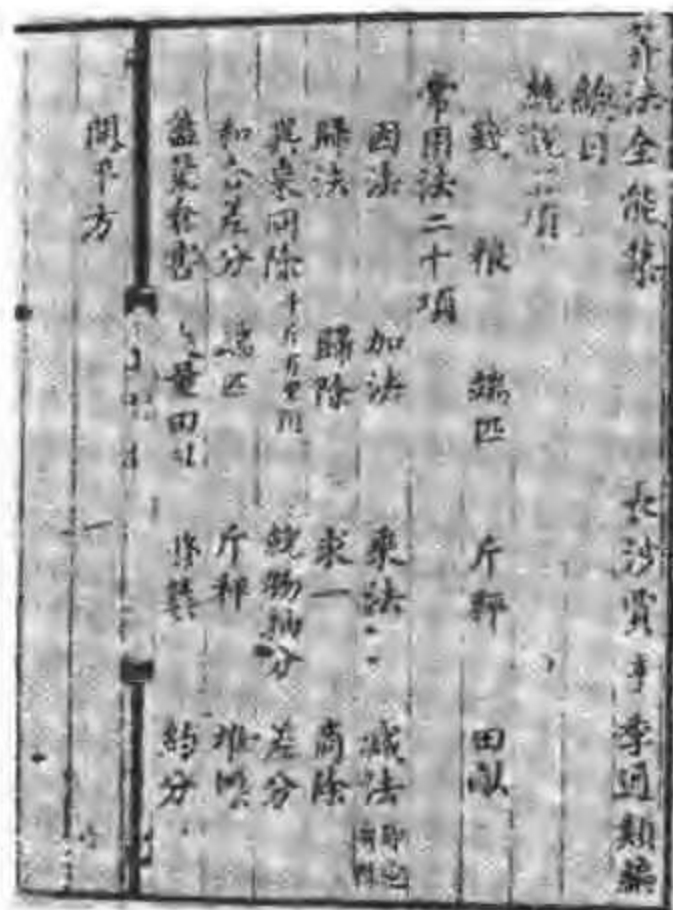 算法全能集 長沙賈亨季通類編
總目
統說五項
錢 粮 端匹 斤秤 田畝
常用法二十項
因法 加法 乘法 減法
歸法 歸除 求一 商除
異乘同除 就物抽分 差分
和合差分 端匹 斤秤 堆垛
盈朒 量田 修築 約分
開平方